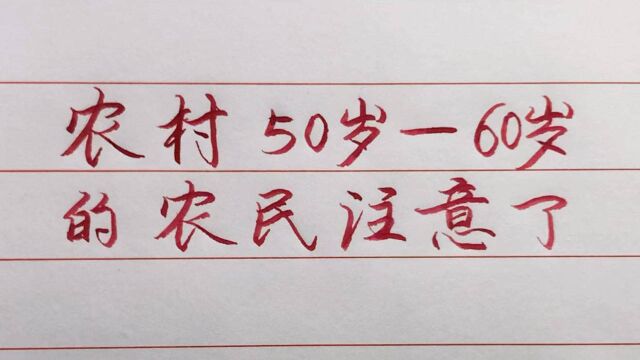 农村50岁一60岁
的农民注意了